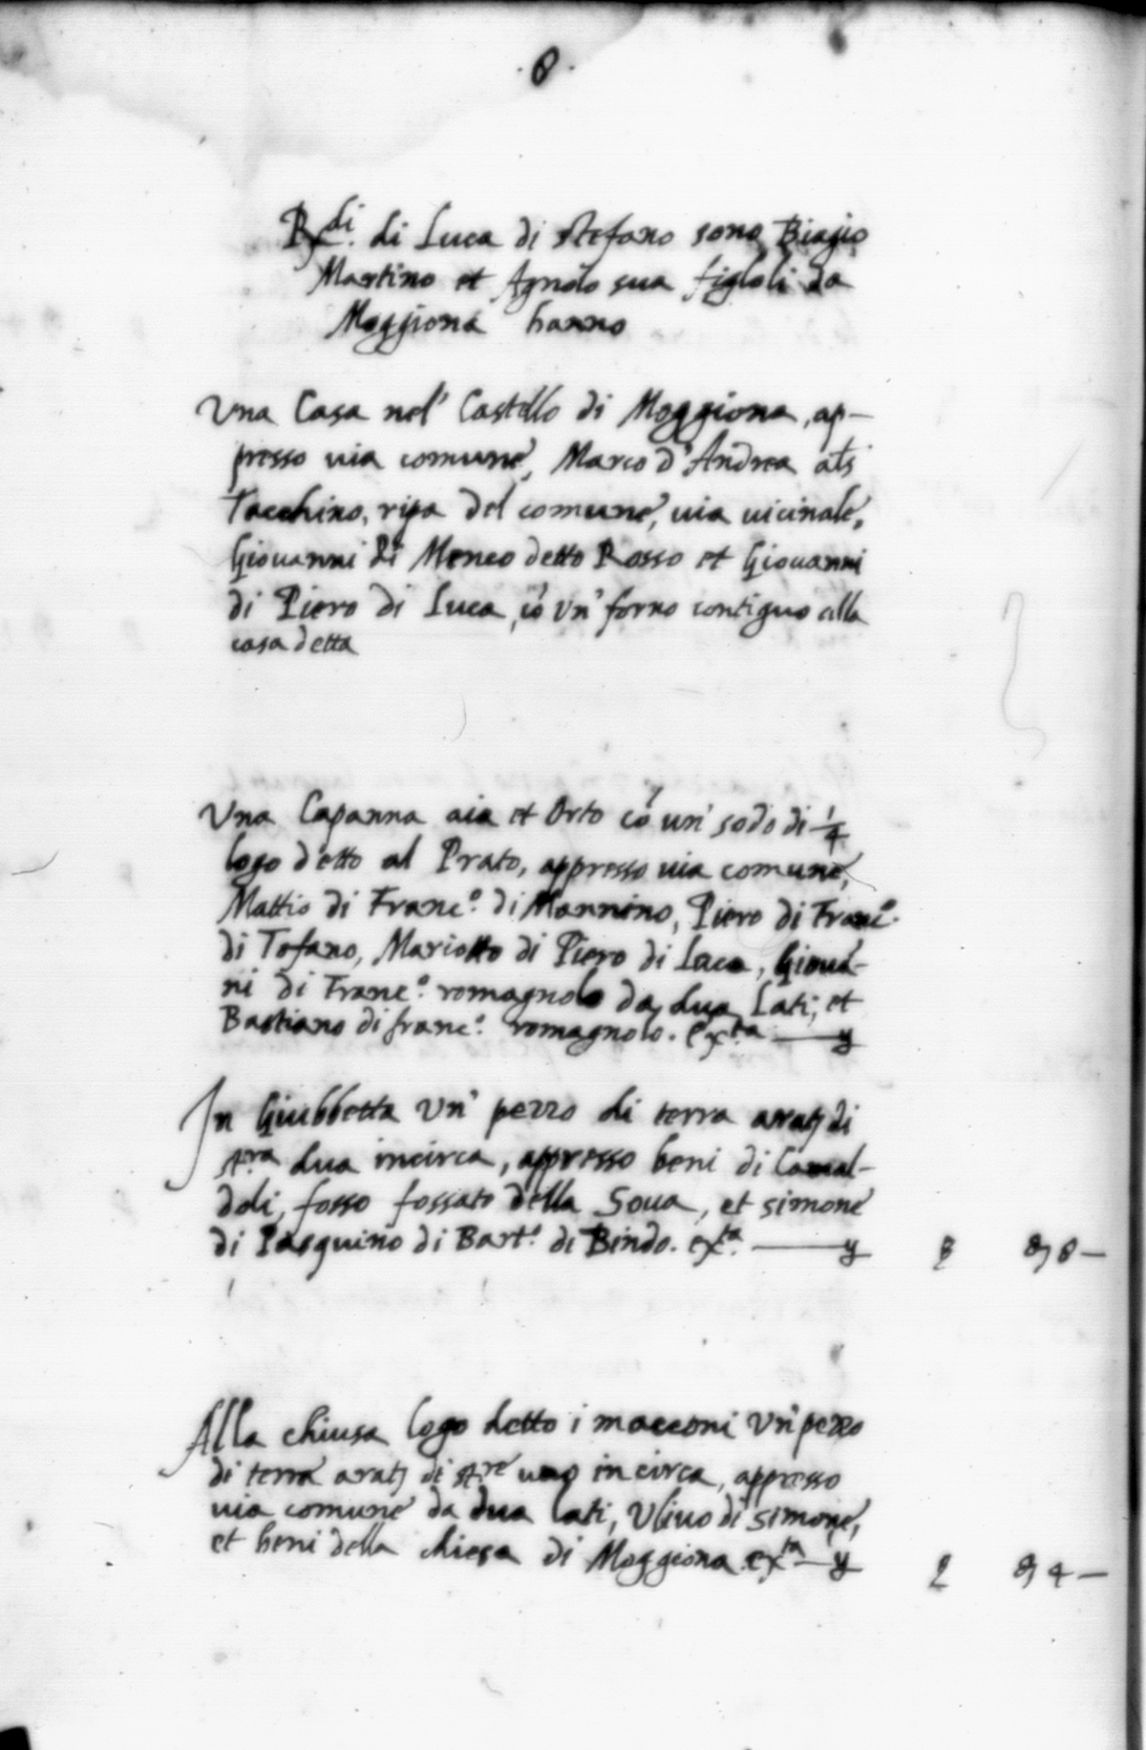 ·8·
R.di di Luca di stefano sono Biagio
Martino et Agnolo sua figloli da
Moggiona hanno
Una Casa nel' Castello di Moggiona, ap-
presso uia comune, Marco d'Andrea als
Tacchino, ripa del comune, uia uicinale,
Giouanni di Meneo detto Rosso et Giouanni
di Piero di Luca, cō un' forno contiguo alla
casa detta
Una Capanna aia et Orto cō un' sodo di 1/4
logo detto al Prato, appresso uia comune,
Mattio di Franc.o di Mannino, Piero di Franc.o
di Tofano, Mariotto di Piero di Luca, Giouā-
ni di Franc.o romagnolo da dua Lati, et
Bastiano di franc.o romagnolo. ex.ta
In Giubbetta un' pezzo di terra arat. di
st.ra dua incirca, appresso beni di Camal-
doli, fosso fossato della Soua, et simone
di Pasquino di Bart.o di Bindo. ex.ta
Alla chiusa logo detto i macconi un' pezzo
di terra arat. di st.re uno incirca, appresso
uia comune da dua lati, Uliuo di simone,
et beni della chiesa di Moggiona. ex.ta